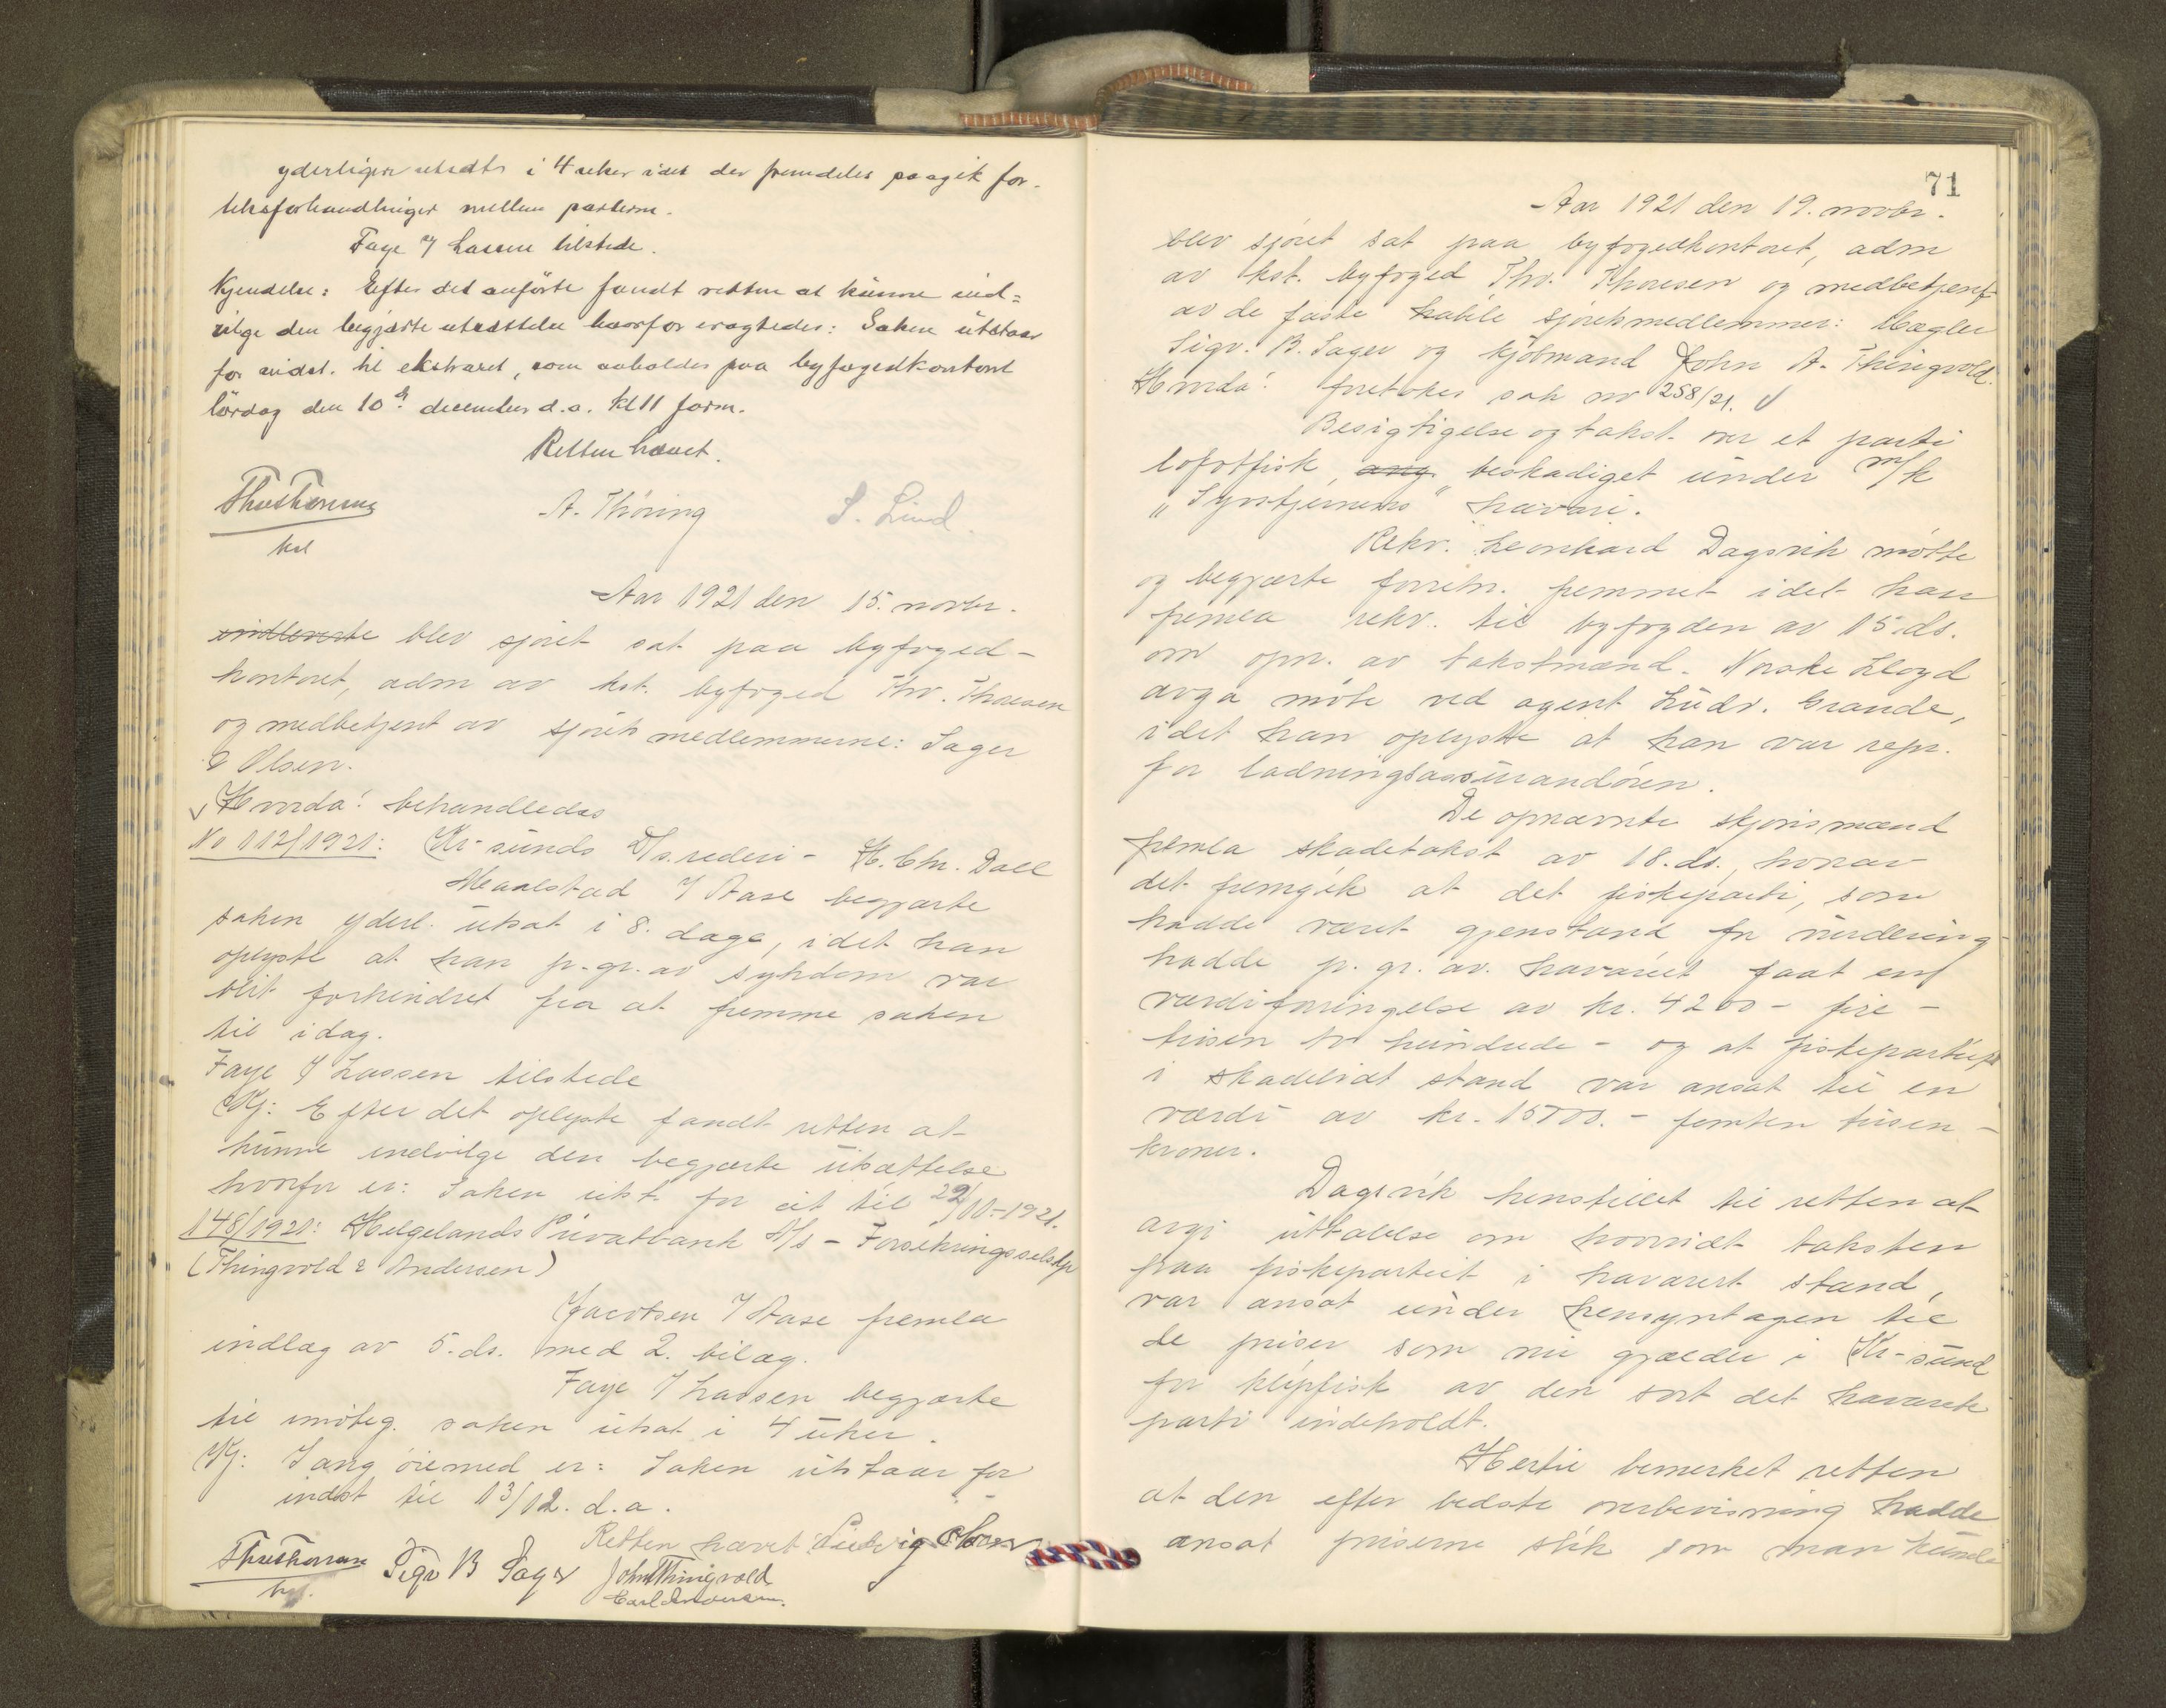 yderligere utsadt i 4 uker idet der fremdeles paagik for-
liksforhandlinger mellem parterne.
Faye f Lassen tilstede.
Kjendelse: Efter det anførte fandt retten at kunne ind-
vilge den begjærte utsættelse hvorfor eragtedes: Saken utstaar
for indst. til ekstraret, som avholdes paa byfogedkontoret
lördag den 10de december d.a. kl 11 form.
Retten hævet.
Thv Thoresen
kst
A. Thöring
S. Lind.
Aar 1921 den 15. novbr.
blev sjöret sat paa byfoged-
kontoret, adm av kst. byfoged Thv. Thoresen
og medbetjent av sjöretsmedlemmerne: Sager
& Olsen.
Hvorda: behandledes
No 112/1921: Kr-sunds D/s.rederi - H. Chr. Dall
Maalstad f Aase begjærte
saken yderl. utsat i 8. dage, idet han
oplyste at han p.gr.av sykdom var
blit forhindret fra at fremme saken
til idag.
Faye f Lassen tilstede
Kj: Efter det oplyste fandt retten at
kunne indvilge den begjærte utsættelse
hvorfor er: Saken utst. for eit til 22/11-1921.
148/1921: Helgelands Privatbank A/s - Forsikringsselskp
(Thingvold & Andersen)
Jacobsen f Aase fremla
indlæg av 5. ds. med 2. bilag.
Faye f Lassen begjærte
til imöteg. saken utsat i 4 uker.
Kj: I ang öiemed er: Saken utstaar for
indst til 13/12. d.a.
Retten hævet Ludvig Olsen
Thv Thoresen
kst.
Sigv B Sager
John Thingvold
Carl Andersen.
71
Aar 1921 den 19. novbr.
blev sjöret sat paa byfogedkontoret, adm
av kst. byfoged Thv. Thoresen og medbetjent
av de faste sjöretsmedlemmer: Mægler
Sigv. B. Sager og kjöbmand John A. Thingvold.
Hvorda: foretokes sak no 258/21.
Besigtigelse og takst over et parti
lofotfisk, ang. beskadiget under m/k
"Syvstjernens" havari.
Rekv. Leonhard Dagsvik mötte
og begjærte forretn. fremmet idet han
fremla rekv. til byfogden av 15 ds.
om opn. av takstmænd. Norske Lloyd
avga möte ved agent Ludv. Grande,
idet han oplyste at han var repr.
for ladningsassurandören.
De opnævnte skjönsmænd
fremla skadetakst av 18. ds., hvorav
det fremgik at det fiskeparti, som
hadde været gjenstand for vurdering
hadde p. gr. av. havariet faat en
værdiforringelse av kr. 4200 - fire -
tusen to hundrede - og at fiskepartiet
i skadelidt stand var ansat til en
værdi av kr. 15000. - femten tusen -
kroner.
Dagsvik henstillet til retten at
avgi uttalelse om hvorvidt taksten
paa fiskepartiet i havarert stand,
var ansat under hensyntagen til
de priser som nu gjælder i Kr-sund
for klipfisk av den sort det havarerte
parti indeholdt.
Hertil bemerket retten
at den efter bedste overbevisning hadde
ansat priserne slik som man kunde